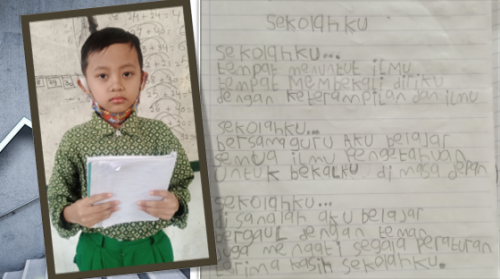 sekolahku
sekolahku...
tempat menuntut ilmu.
tempat membekali diriku
dengan keterampilan dan ilmu
sekolahku...
bersama guru aku belajar
semua ilmu pengetahuan
untuk bekalku di masa depan
sekolahku...
di sanalah aku belajar
bergaul dengan teman
juga menaati segala peraturan
terima kasih sekolahku.